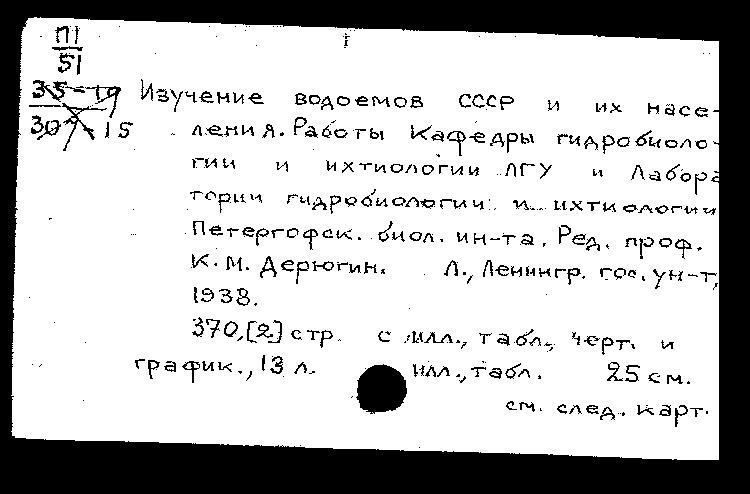 П1
51
35-19
307-15
Изучение водоемов СССР и их насе-
ления. Работы Кафедры гидробиоло-
гии и ихтиологии ЛГУ и Лабора
тории гидробиологии и ихтиологии
Петергофск. биол. ин-та. Ред. проф.
К.М. Дерюгин. Л., Ленингр. гос. ун-т,
1938.
370,[2] стр. с илл., табл., черт. и
график., 13 л. илл., табл. 25 см.
см. след. карт.